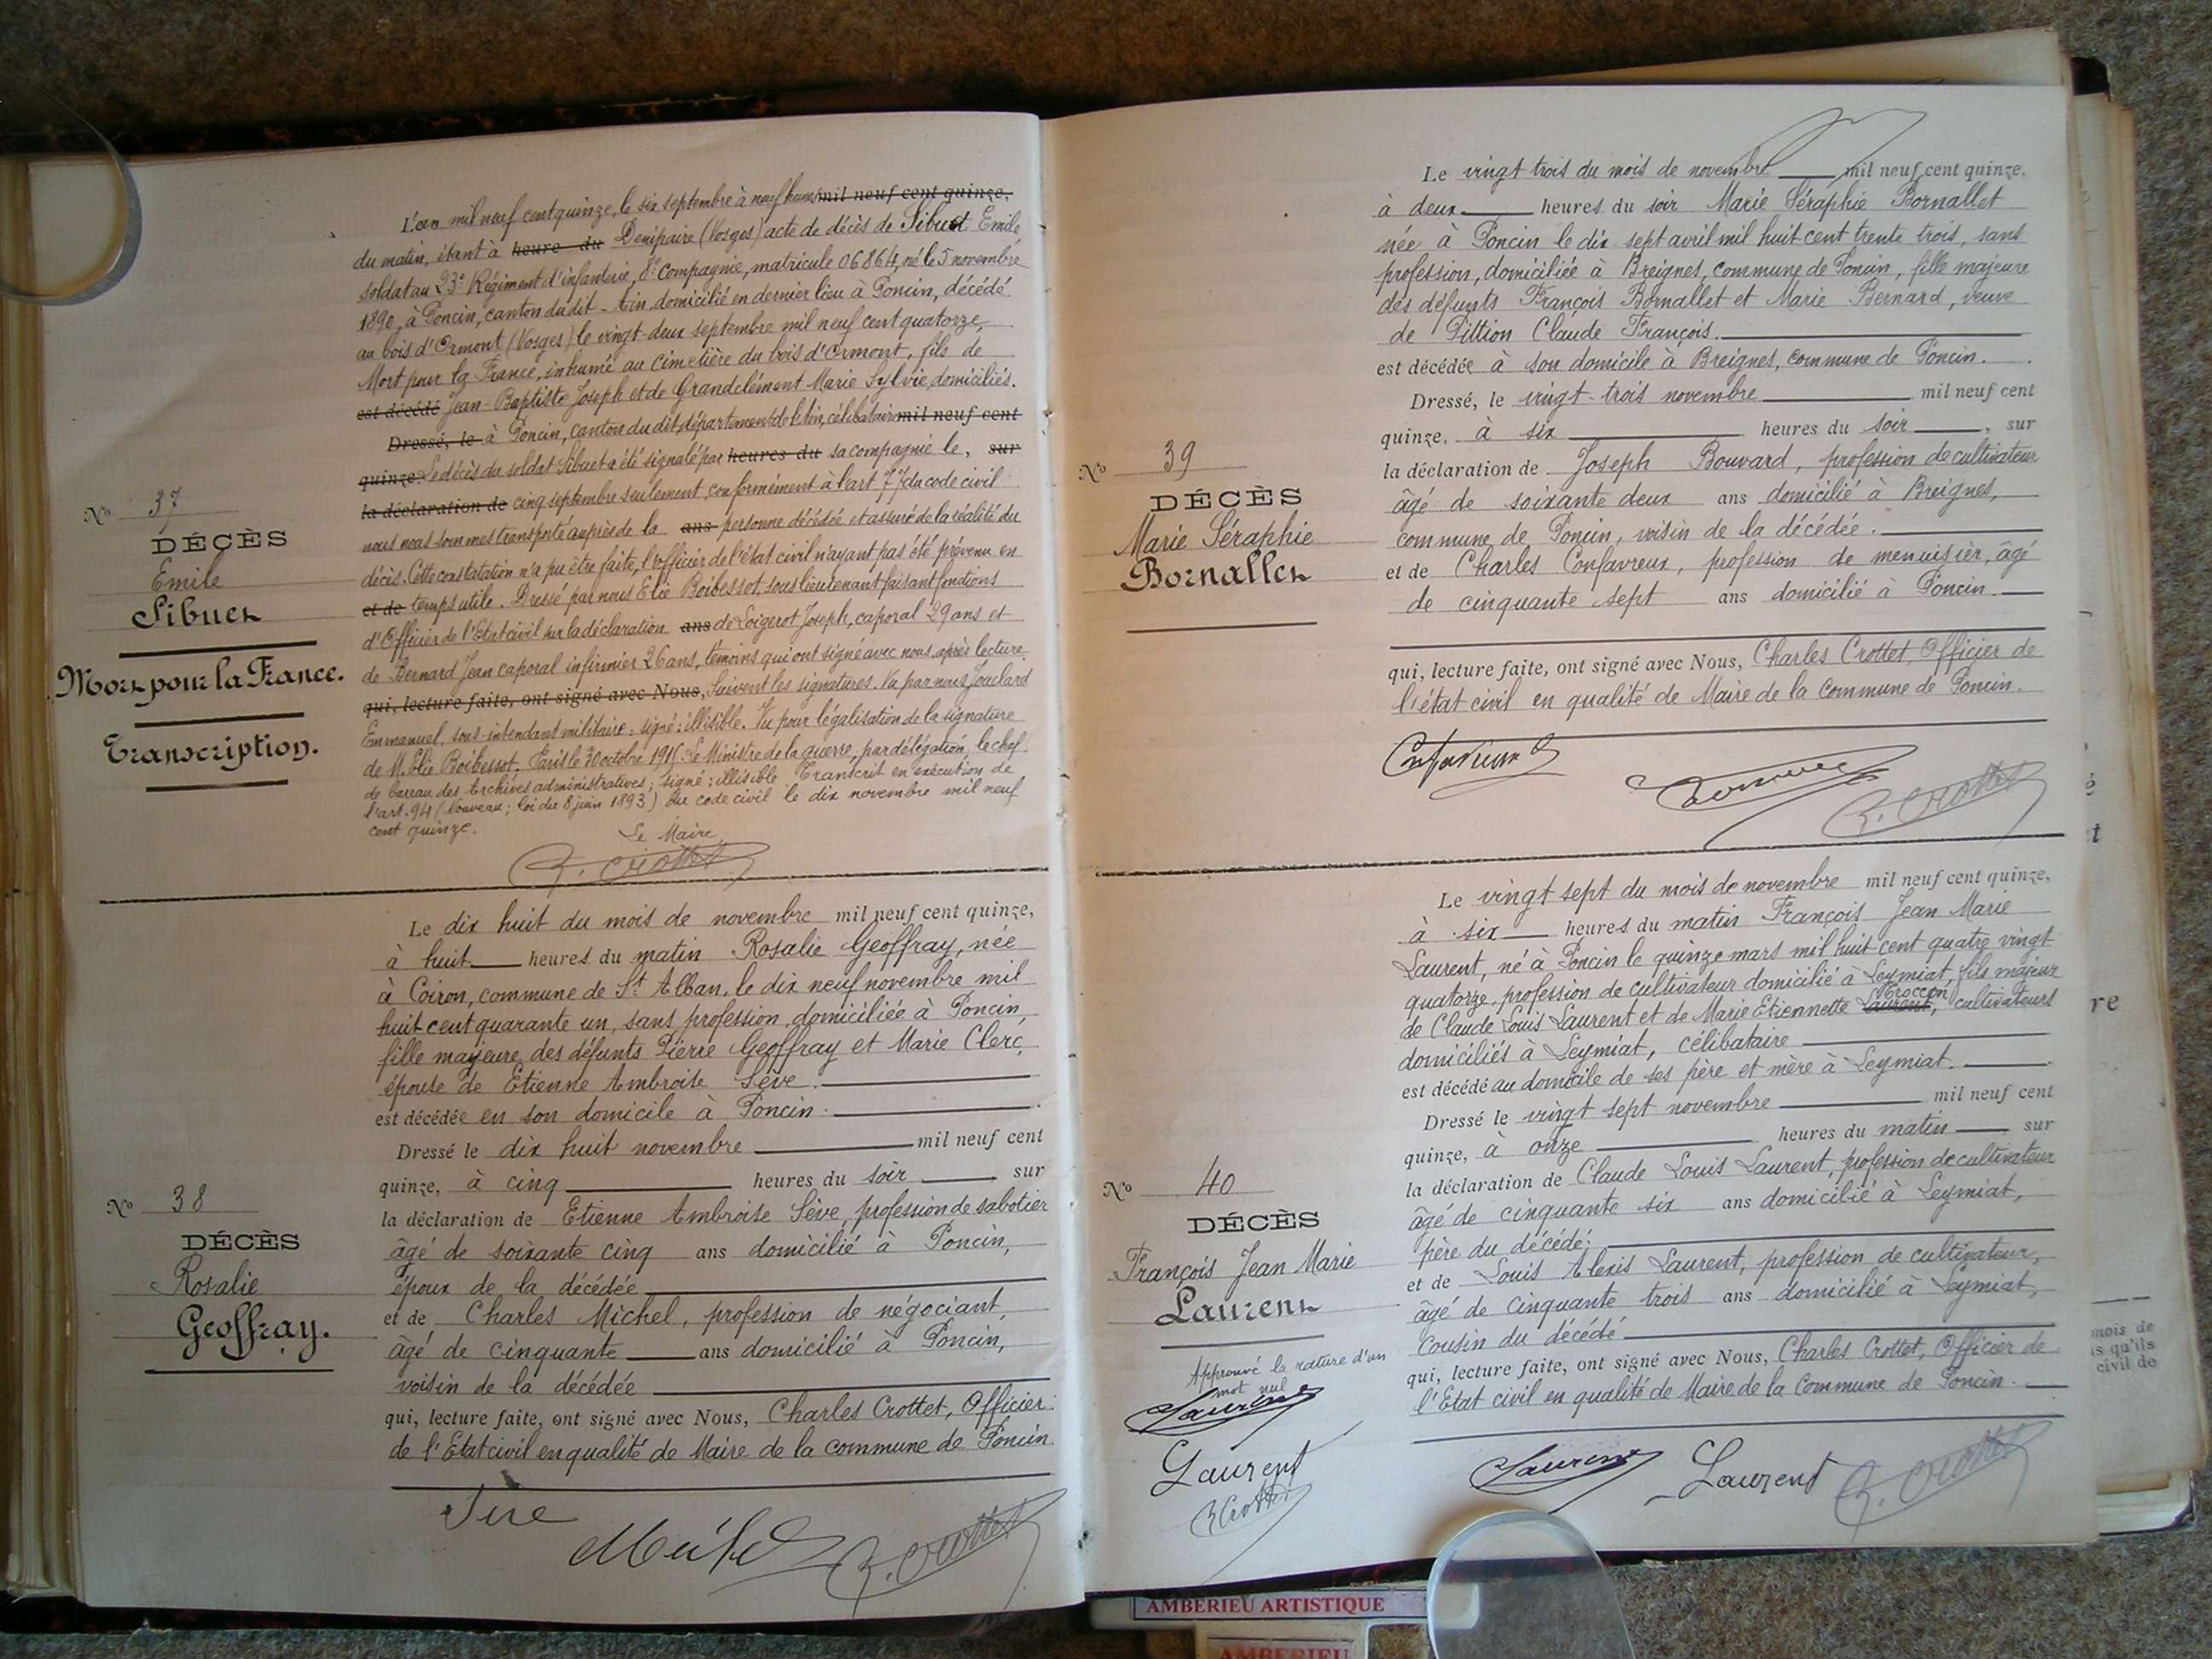 L'an mil neuf cent quinze, le six septembre à neuf heures mil neuf cent quinze,
du matin, étant à heure du Denipaire (Vosges) acte de décès de Sibuet Emile
soldat au 23e Régiment d'infanterie, 8e Compagnie, matricule 06864, né le 5 novembre
1890, à Poncin, canton du dit - Ain, domicilié en dernier lieu à Poncin, décédé
au bois d'Ormont (Vosges) le vingt-deux septembre mil neuf cent quatorze,
Mort pour la France, inhumé au cimetière du bois d'Ormont, fils de
est décédé Jean-Baptiste Joseph et de Grandclément Marie Sylvie, domiciliés.
Dressé, le à Poncin, canton du dit, département de l'Ain, célibataire mil neuf cent
quinze. Le décès du soldat Sibuet a été signalé par heures du sa compagnie le, sur
la déclaration de cinq septembre seulement, conformément à l'art 77 du code civil
nous nous sommes transporté auprès de la ans personne décédée et assuré de la réalité du
décès. Cette constatation n'a pu être faite, l'officier de l'état civil n'ayant pas été prévenu en
et de temps utile. Dressé par nous Elie Boibessot, sous lieutenant faisant fonctions
d'Officier de l'Etat civil sur la déclaration ans de Loigerot Joseph, caporal 29 ans et
de Bernard Jean caporal infirmier 26 ans, témoins qui ont signé avec nous après lecture.
qui, lecture faite, ont signé avec Nous, Suivent les signatures. Vu par nous Jouclard
Emmanuel, sous-intendant militaire. signé: illisible. Vu pour légalisation de la signature
de M. Elie Boibessot. Paris le 30 octobre 1915. Le Ministre de la guerre, par délégation, le chef
de bureau des Archives administratives; signé: illisible Transcrit en exécution de
l'art. 94 (Nouveau; loi du 8 juin 1893) du code civil le dix novembre mil neuf
cent quinze.
Le Maire
C. Crottet
No 37
DÉCÈS
Emile
Sibuet
Mort pour la France.
Transcription.
Le dix huit du mois de novembre mil neuf cent quinze,
à huit heures du matin Rosalie Geoffray, née
à Coiron, commune de St Alban, le dix neuf novembre mil
huit cent quarante un, sans profession, domiciliée à Poncin,
fille majeure des défunts Pierre Geoffray et Marie Clerc,
épouse de Etienne Ambroise Sève.
est décédée en son domicile à Poncin.
Dressé le dix huit novembre mil neuf cent
quinze, à cinq heures du soir sur
la déclaration de Etienne Ambroise Sève, profession de sabotier
âgé de soixante cinq ans domicilié à Poncin,
époux de la décédée
et de Charles Michel, profession de négociant,
âgé de cinquante ans domicilié à Poncin,
voisin de la décédée
qui, lecture faite, ont signé avec Nous, Charles Crottet, Officier
de l'Etat civil en qualité de Maire de la commune de Poncin.
No 38
DÉCÈS
Rosalie
Geoffray.
Sève
Michel
C. Crottet
Le vingt trois du mois de novembre mil neuf cent quinze,
à deux heures du soir Marie Séraphie Bornallet
née à Poncin le dix sept avril mil huit cent trente trois, sans
profession, domiciliée à Breignes, commune de Poncin, fille majeure
des défunts François Bornallet et Marie Bernard, veuve
de Pittion Claude François.
est décédée à son domicile à Breignes, commune de Poncin.
Dressé, le vingt-trois novembre mil neuf cent
quinze, à six heures du soir, sur
la déclaration de Joseph Bouvard, profession de cultivateur
âgé de soixante deux ans domicilié à Breignes,
commune de Poncin, voisin de la décédée.
et de Charles Confavreux, profession de menuisier, âgé
de cinquante sept ans domicilié à Poncin.
qui, lecture faite, ont signé avec Nous, Charles Crottet, Officier de
l'état civil en qualité de Maire de la commune de Poncin.
No 39
DÉCÈS
Marie Séraphie
Bornallet
Confavreux
C. Crottet
Le vingt sept du mois de novembre mil neuf cent quinze,
à six heures du matin François Jean Marie
Laurent, né à Poncin le quinze mars mil huit cent quatre vingt
quatorze, profession de cultivateur domicilié à Leymiat, fils majeur
de Claude Louis Laurent et de Marie Etiennette Laurent, Troccon, cultivateurs
domiciliés à Leymiat, célibataire
est décédé au domicile de ses père et mère à Leymiat.
Dressé le vingt sept novembre mil neuf cent
quinze, à onze heures du matin sur
la déclaration de Claude Louis Laurent, profession de cultivateur
âgé de cinquante six ans domicilié à Leymiat,
père du décédé.
et de Louis Alexis Laurent, profession de cultivateur,
âgé de cinquante trois ans domicilié à Leymiat,
cousin du décédé
qui, lecture faite, ont signé avec Nous, Charles Crottet, Officier de
l'Etat civil en qualité de Maire de la commune de Poncin.
No 40
DÉCÈS
François Jean Marie
Laurent
Approuvé la rature d'un
mot nul
Laurent
Laurent
C. Crottet
Laurent Laurent C. Crottet
é
t
re
mois de
is qu'ils
civil de
AMBERIEU ARTISTIQUE
AMBERIEU